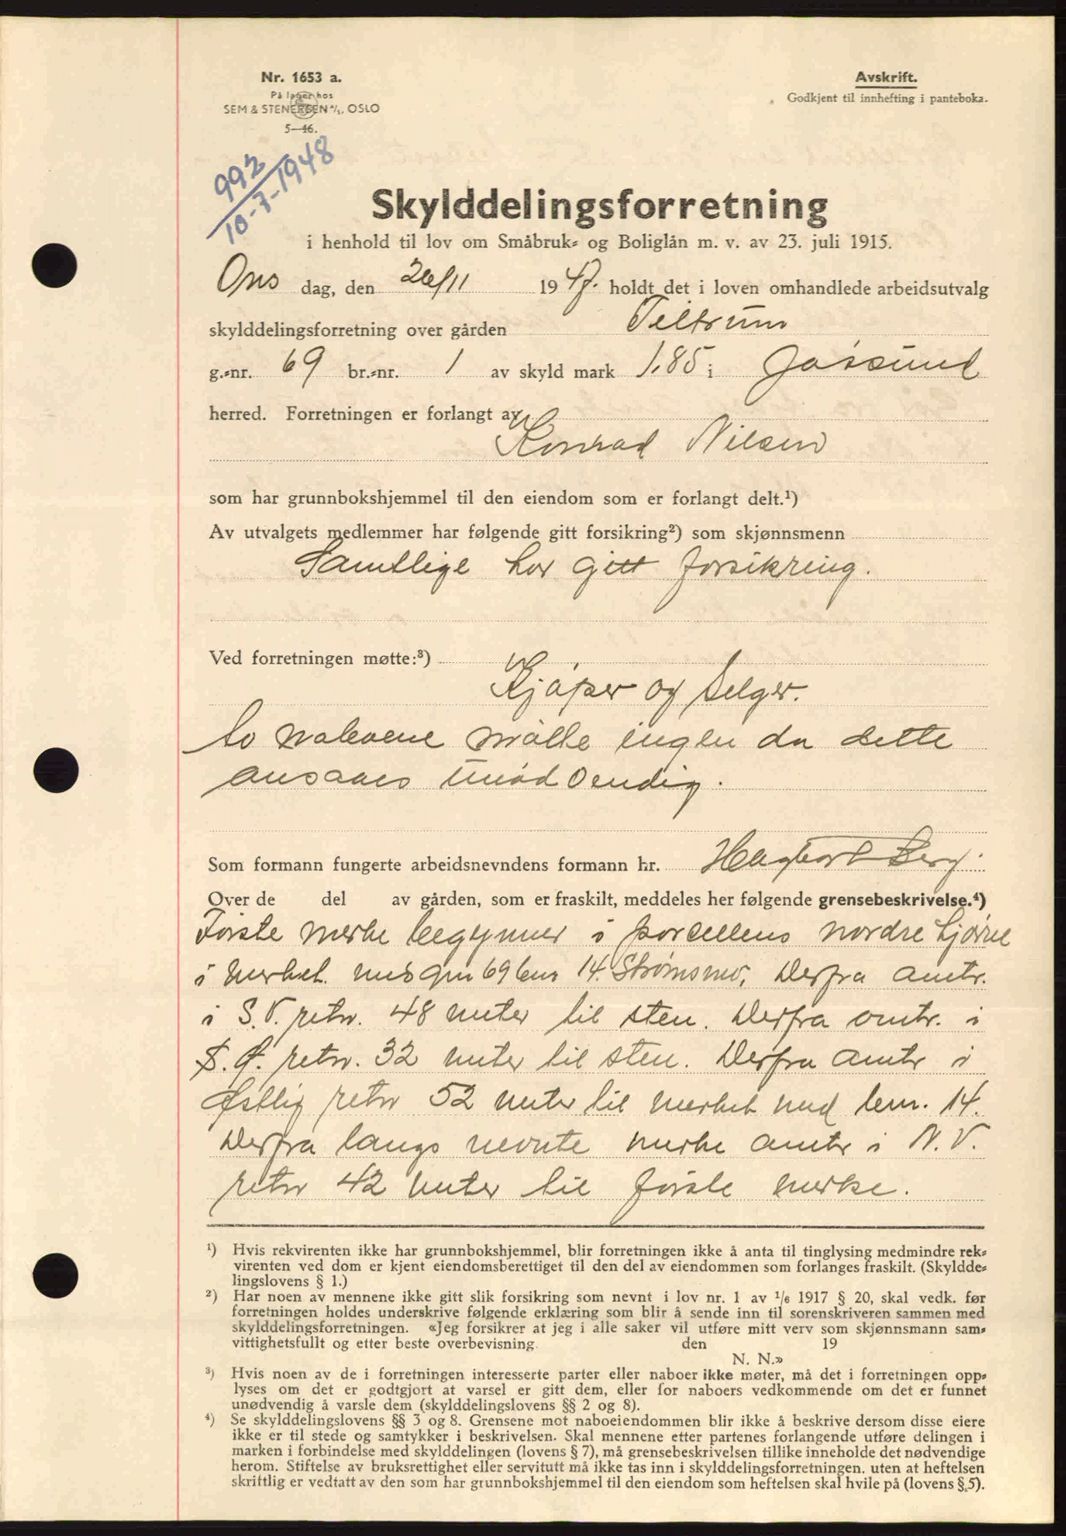 Nr. 1653 a.
På lager hos
SEM & STENERSEN A/S, OSLO
5-46.
Avskrift.
Godkjent til innhefting i panteboka.
992
10-7-1948
Skylddelingsforretning
i henhold til lov om Småbruk- og Boliglån m. v. av 23. juli 1915.
Ons dag, den 26/11 1947. holdt det i loven omhandlede arbeidsutvalg
skylddelingsforretning over gården Teltrum
g.-nr. 69 br.-nr. 1 av skyld mark 1.85 i Jøssund
herred. Forretningen er forlangt av
Konrad Nilsen
som har grunnbokshjemmel til den eiendom som er forlangt delt.¹)
Av utvalgets medlemmer har følgende gitt forsikring²) som skjønnsmenn
Samtlige har gitt forsikring.
Ved forretningen møtte:³)
Kjøper og Selger.
Av naboene møtte ingen da dette
ansaaes unødvendig.
Som formann fungerte arbeidsnevndens formann hr. Hagbart Berg.
Over de del av gården, som er fraskilt, meddeles her følgende grensebeskrivelse.⁴)
Første merke begynner i parcellens nordre hjørne
i merket med gnr 69 bnr 14. Strømsmo, Derfra omtr.
i S.V. retn. 48 meter til sten. Derfra omtr. i
S.Ø. retn. 32 meter til sten. Derfra omtr i
Østlig retn 52 meter til merket med bnr. 14.
Derfra langs nevnte merke omtr i N.V.
retn 42 meter til første merke.
¹) Hvis rekvirenten ikke har grunnbokshjemmel, blir forretningen ikke å anta til tinglysing medmindre rek-
virenten ved dom er kjent eiendomsberettiget til den del av eiendommen som forlanges fraskilt. (Skyldde-
lingslovens § 1.)
²) Har noen av mennene ikke gitt slik forsikring som nevnt i lov nr. 1 av 1/6 1917 § 20, skal vedk. før
forretningen holdes underskrive følgende erklæring som blir å sende inn til sorenskriveren sammen med
skylddelingsforretningen. «Jeg forsikrer at jeg i alle saker vil utføre mitt verv som skjønnsmann sam-
vittighetsfullt og etter beste overbevisning. den 19
N. N.»
³) Hvis noen av de i forretningen interesserte parter eller naboer ikke møter, må det i forretningen opp-
lyses om det er godtgjort at varsel er gitt dem, eller for naboers vedkommende om det er funnet
unødvendig å varsle dem (skylddelingslovens §§ 2 og 8).
⁴) Se skylddelingslovens §§ 3 og 8. Grensene mot naboeiendommen blir ikke å beskrive dersom disse eiere
ikke er til stede og samtykker i beskrivelsen. Skal mennene etter partenes forlangende utføre delingen i
marken i forbindelse med skylddelingen (lovens § 7), må grensebeskrivelsen tillike inneholde det nødvendige
herom. Stiftelse av bruksrettighet eller servitutt må ikke tas inn i skylddelingsforretningen, uten at heftelsen
skriftlig er vedtatt av den som har grunnbokshjemmel til den eiendom som heftelsen skal hvile på (lovens § 5).